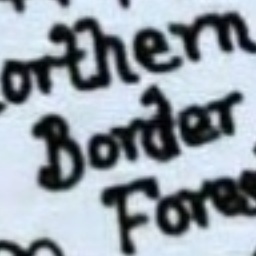 orthern
Border
Fores